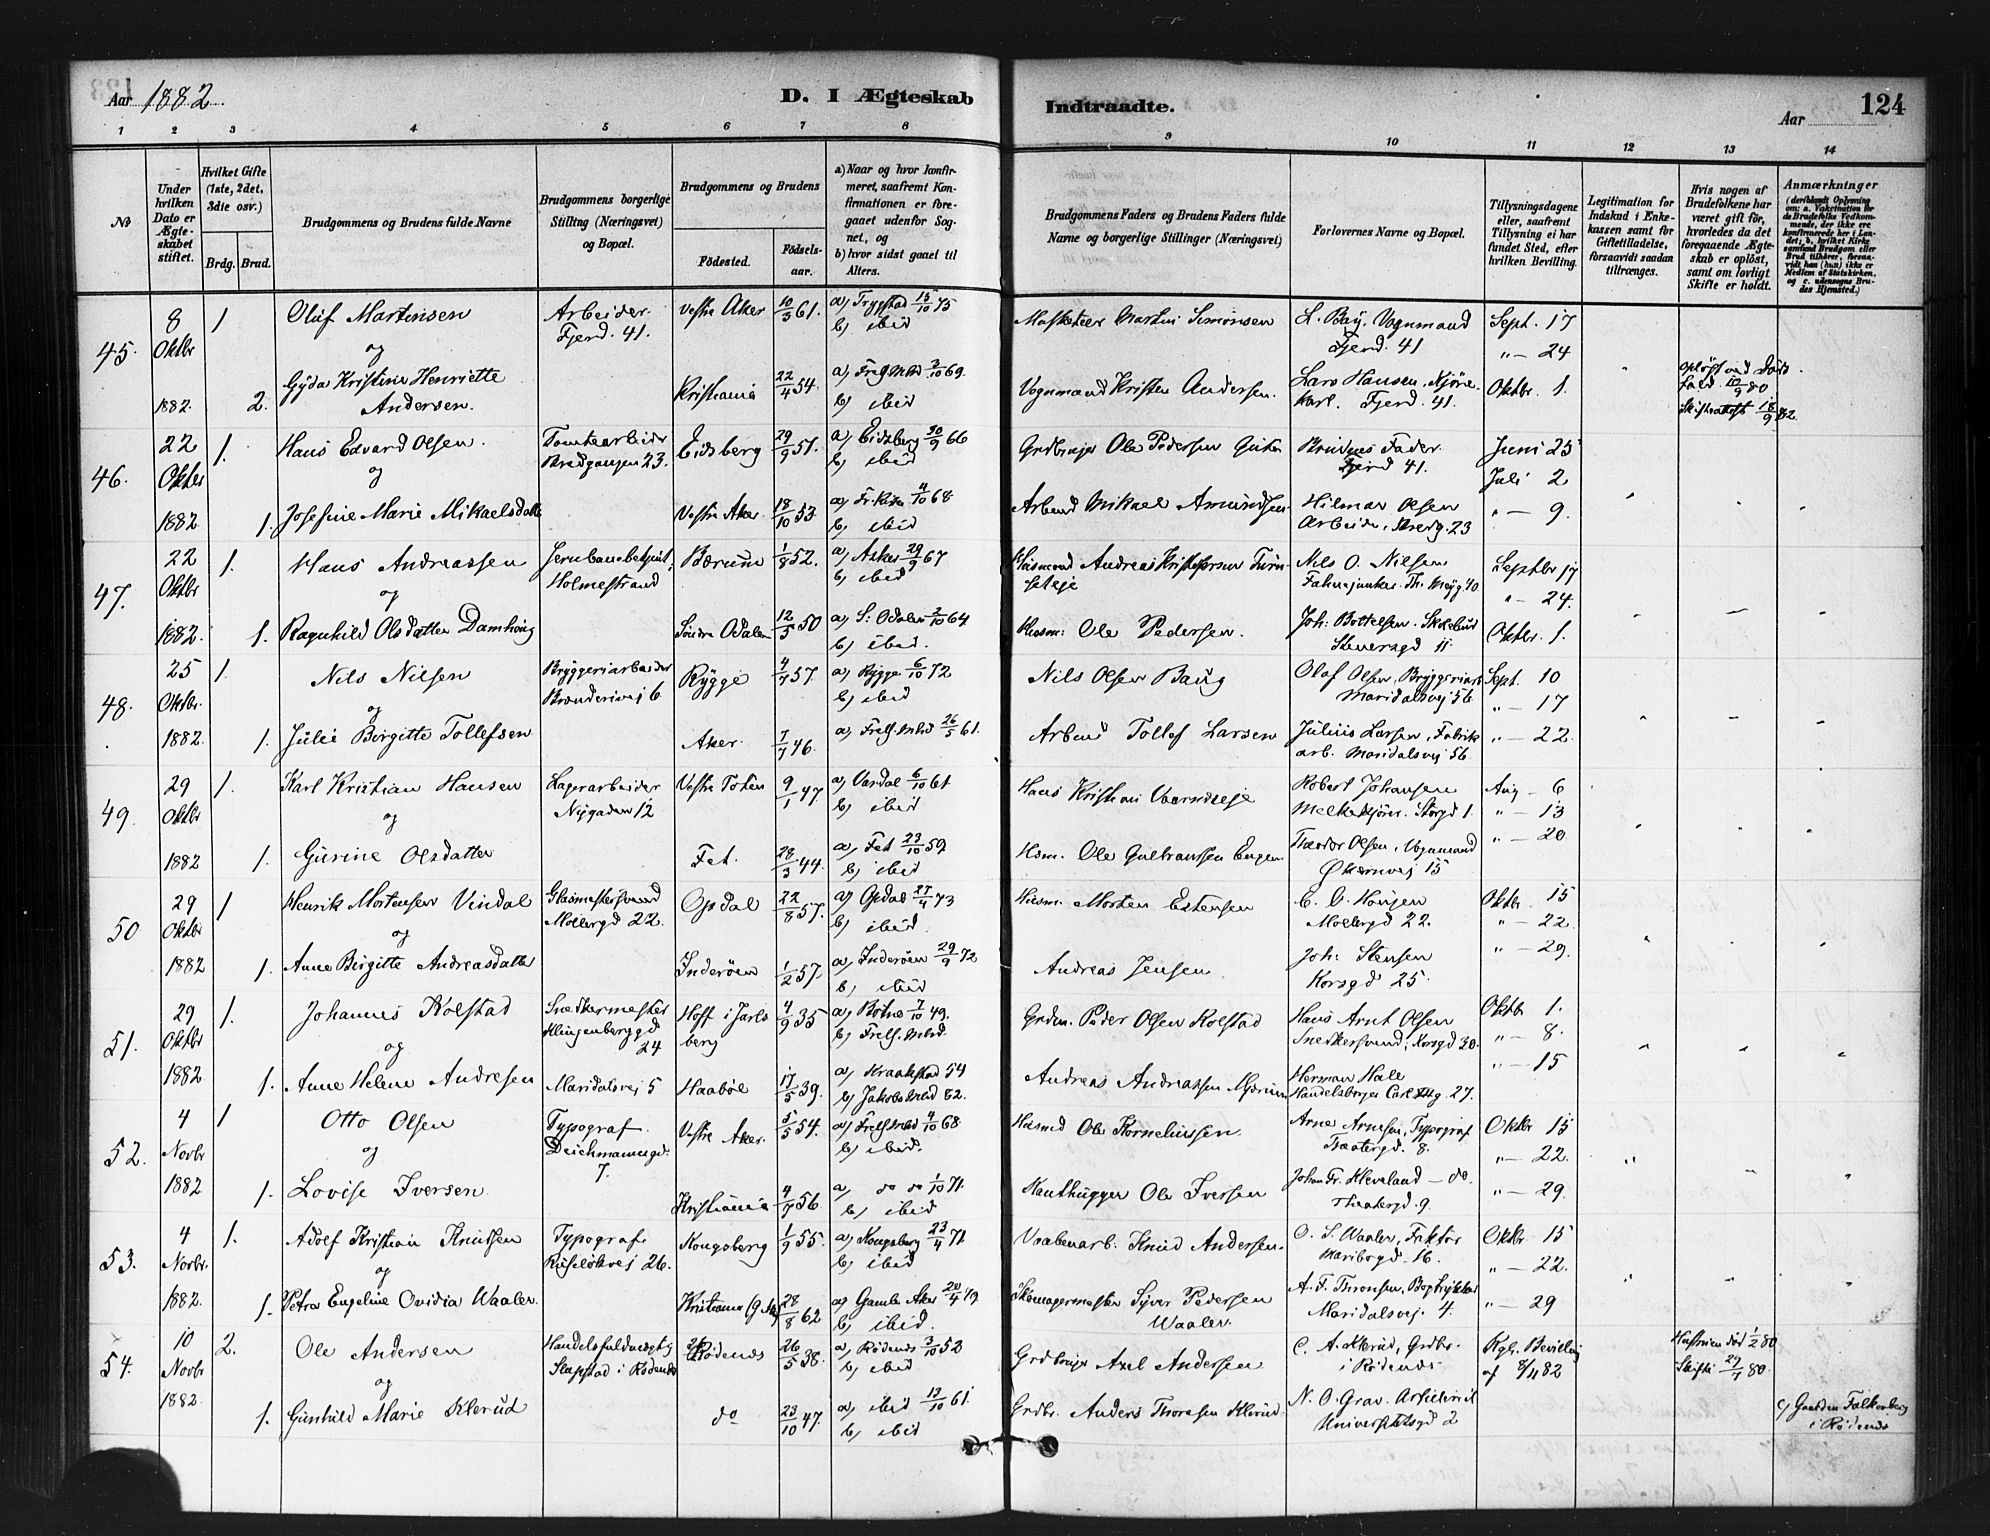 Aar 1882.
D. I Ægteskab Indtraadte.
Aar
124
1 2 3 4 5 6 7 8 9 10 11 12 13 14
No
Under hvilken Dato er Ægteskabet stiftet.
Hvilket Gifte (1ste, 2det, 3die osv.)
Brdg. Brud.
Brudgommens og Brudens fulde Navne
Brudgommens borgerlige Stilling (Næringsvei) og Bopæl.
Brudgommens og Brudens
Fødested.
Fødselsaar.
a) Naar og hvor konfirmeret, saafremt Konfirmationen er foregaaet udenfor Sognet, og
b) hvor sidst gaaet til Alters.
Brudgommens Faders og Brudens Faders fulde Navne og borgerlige Stillinger (Næringsvei)
Forlovernes Navne og Bopæl.
Tillysningsdagene eller, saafremt Tillysning ei har fundet Sted, efter hvilken Bevilling.
Legitimation for Indskud i Enkekassen samt for Giftetilladelse, forsaavidt saadan tiltrænges.
Hvis nogen af Brudefolkene har været gift før, hvorledes da det foregaaende Ægteskab er opløst, samt om lovligt Skifte er holdt.
Anmærkninger
45. 8 Oktbr 1882. 1 Oluf Martinsen Arbeider Fjerd. 41. Vestre Aker 10/3 61. a) Trygstad 15/10 75 b) ibid Martin Simonsen L. Bay, Vognmand Fjerd. 41 Sept. 17 " — 24
og
2. Gyda Kristine Henriette Andersen. Kristiania 22/4 54. a) Frels. Mhd 3/10 69. b) ibid Vognmand Kristen Andersen. Lars Hansen, Kjørekarl. Fjerd. 41. Oktbr. 1. opløst ved Dødsfald 10/9 80 Skifteattest 18/9 82
46. 22 Oktbr 1882 1. Hans Edvard Olsen. Tomtearbeider Bredgangen 23. Eidsberg 29/9 57. a) Eidsberg 30/9 66 b) ibid Ole Pedersen Brudens Fader Fjerd 41. Juni 25 Juli 2
og
1. Josefine Marie Mikaelsdatte Vestre Aker 18/10 53. 4/10 68 b) ibid Arbmd Mikael Amundsen Hilmar Olsen Arbeider, Bredg. 23 " — 9.
47. 22 Oktbr 1882. 1. Hans Andreassen Holmestrand Bærum 1/8 52. a) Asker 29/9 67 b) ibid Husmand Andreas Kristofersen Nils O. Nilsen Fanejunker. Th. Meyg. 40 Septbr 17 " — 24.
og
1. Ragnhild Olsdatter Damhaug Søndre Odalen 12/5 50 a) S. Odalen 2/10 64 b) ibid. Husm: Ole Pedersen. Joh: Bottelsen. Stenersgd 11 Oktbr. 1.
48. 25 Oktbr. 1882. 1. Nils Nilsen Bryggeriarbeider Brænderivej 6 Rygge 4/7 57. a) Rygge 6/10 72 b) ibid Nils Olsen Baug Olaf Olsen, Bryggeriarb Maridalsvej 56. Sept. 10 " — 17
og
1. Julie Birgitte Tollefsen Aker. 7/1 46. a) Frels. Mhd 26/5 61. Arbmd Tollef Larsen Julius Larsen, Fabrikarb. Maridalsvej 56. " — 22.
49. 29 Oktbr 1882 1. Karl Kristian Hansen Lagerarbeider Nygaden 12 Vestre Toten 9/1 47 a) Vardal 6/10 61 b) ibid Hans Kristian Robert Johansen Melkekjører. Storgd 1. Aug — 6 " — 13
og
1. Gurine Olsdatter Fet. 28/3 44. a) Fet 23/10 59 b) ibid Hsm. Ole Gulbranssen Engen Theodor Olsen, Vognmand Økernvej 15 " — 20
50 29 Oktbr 1882 1 Henrik Mortensen Vindal Glasmestersvend Møllergd 22. Opdal 22/8 57. a) Opdal 27/4 73 b) ibid. Husm. Morten Estensen Møllergd 22. Oktbr. 15 " — 22
og
1. Anne Birgitte Andreasdatter Inderøen 1/2 57. a) Inderøen 29/9 72 b) ibid Andreas Jensen Joh: Stensen Korsgd 25. " — 29.
51. 29 Oktbr 1882 1. Johannes Kolstad Snedkermester Klingenberggd 24 Hoff i Jarlsberg 4/9 35 a) Botne 7/10 49. b) Frels. Mhd. Grdm. Peder Olsen Kolstad Hans Arnt Olsen Snedkersvend, Korsgd 30. Oktbr 1. " — 8.
og
1. Anne Helene Andresen Maridalsvej 5 Haabøl 17/5 39. a) Kraakstad 54 b) Jakobs Mhd 82. Andreas Andreassen Herman Hale Handelsborger Carl XII g. 27. " — 15
52. 4 Novbr 1882 1 Otto Olsen Typograf Deichmannsgd. 7. Vestre Aker. 5/5 54. a) Frels Mhd 4/10 68. b) ibid. Husmd Ole Kornelinssen. Arne Arnesen, Typograf Theatergd. 8. Oktbr 15 " — 22.
og
1. Lovise Iversen Kristiania 4/7 56 a) do do 1/10 71. b) ibid Kanthugger Ole Iversen Johan Fr. Kleveland — do. Theatergd. 9 " — 29.
53. 4 Novbr. 1882. 1. Adolf Kristian Knutsen Typograf Ruseløkvej 26. Kongsberg 1/9 55. a) Kongsberg 23/4 71 b) ibid Vaabenarb. Knud Andersen. O. S. Waaler, Faktor Maribogd. 16. Oktbr. 15 " — 22.
og
1. Petra Engeline Ovidia Waaler. Kristiania (G. Ak) 28/8 62 a) Gamle Aker 20/4 79 b) ibid. Skomagermester Syver Pedersen Waaler. A. F. Thronsen, Bogtrykker Maridalsvej. 4. " — 29
54. 10 Novbr 1882 2. Ole Andersen Handelsfuldmægtig Slupstad i Rødenæs Rødenæs 26/5 38. a) Rødenæs 3/10 52 b) ibid Grdbruger Axel Andersen C. A. Klerud, Grdbr. i Rødenæs Kgl. Bevilling af 8/11 82 Hustruen død 1/2 80 Skifte 29/7 80.
og
1. Gunhild Marie Klerud do 23/10 47. a) ibid 13/10 61. b) ibid Grdbr. Anders Thoresen Klerud. N. O. Grav. Arkitekt Universitetsgd 2 c) Gaarden Falkenberg i Rødenæs